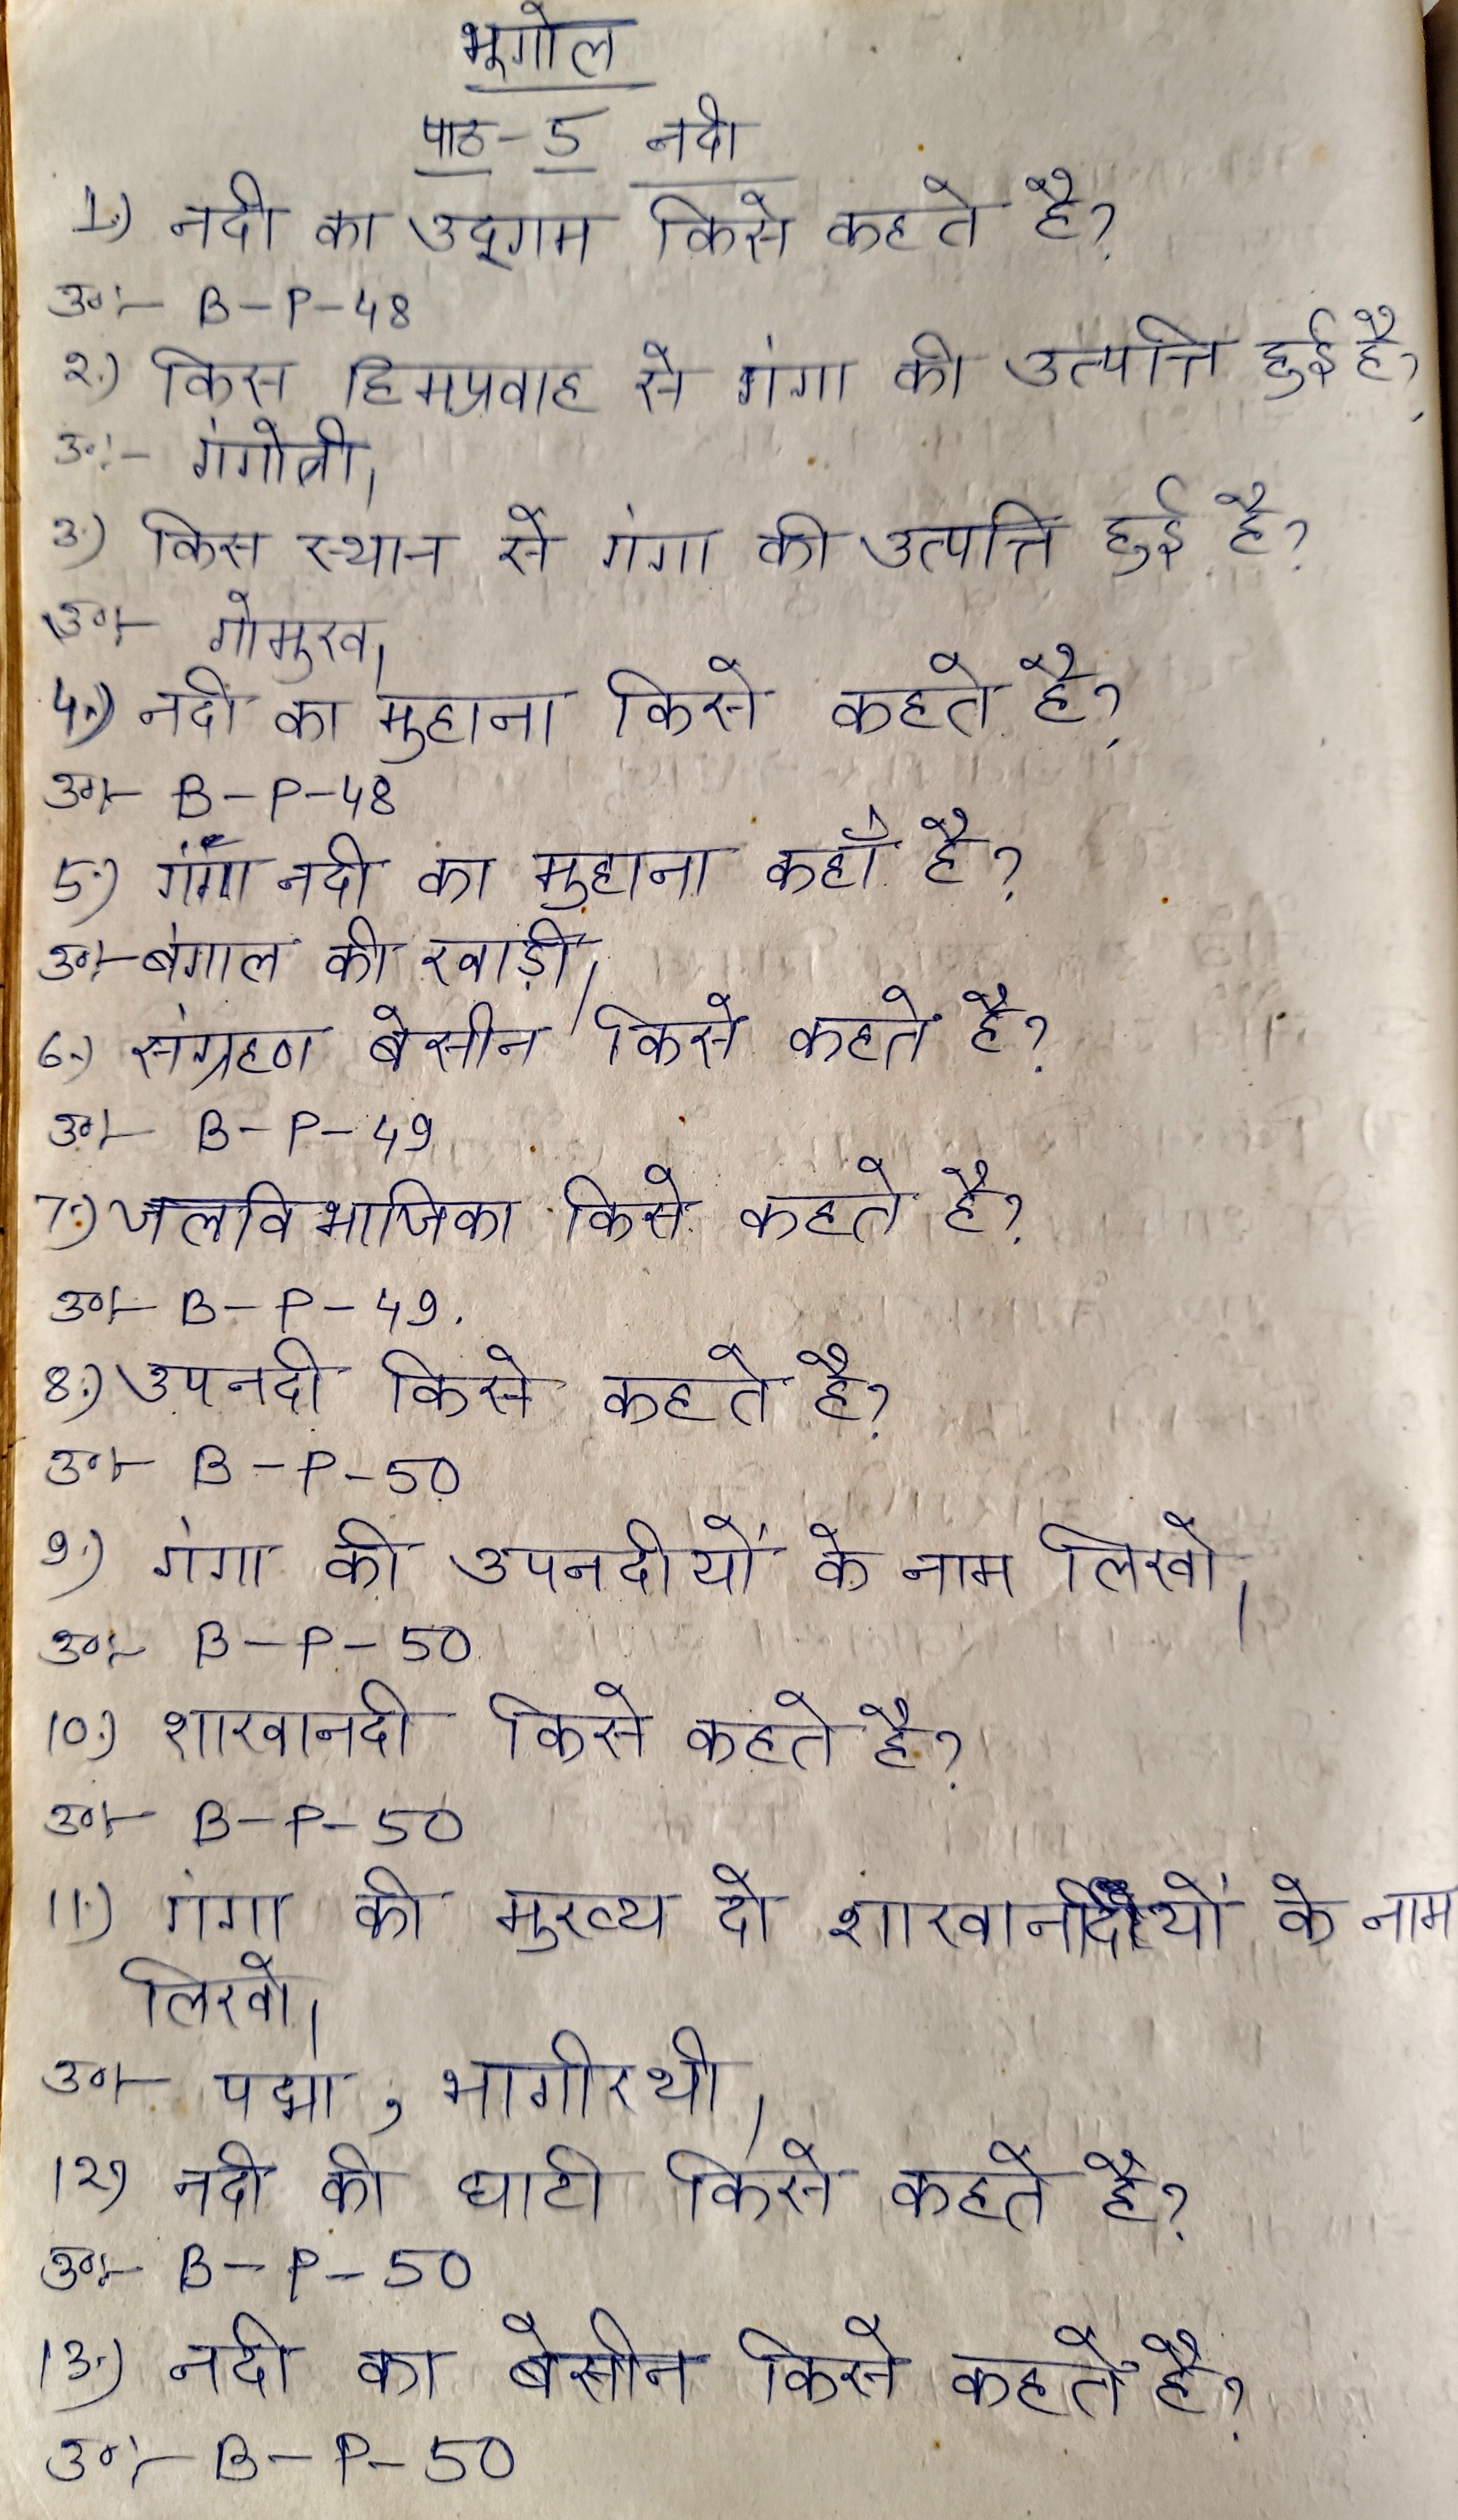 भूगोल
पाठ- 5 नदी
1.) नदी का उद्गम किसे कहते है?
उ०:- B-P-48
२.) किस हिमप्रवाह से गंगा की उत्पत्ति हुई है?
उ०:- गंगोत्री।
3.) किस स्थान से गंगा की उत्पत्ति हुई है?
उ०:- गोमुख।
4.) नदी का मुहाना किसे कहते है?
उ०:- B-P-48
5.) गंगा नदी का मुहाना कहाँ है?
उ०:- बंगाल की खाड़ी।
6.) संग्रहण बेसीन किसे कहते है?
उ०:- B-P-49
7.) जलविभाजिका किसे कहते है?
उ०:- B-P-49.
8.) उपनदी किसे कहते है?
उ०:- B-P-50
9.) गंगा की उपनदीयों के नाम लिखो।
उ०:- B-P-50
10.) शाखानदी किसे कहते है?
उ०:- B-P-50
11.) गंगा की मुख्य दो शाखानदियों के नाम
लिखो।
उ०:- पद्मा, भागीरथी।
1२) नदी की घाटी किसे कहते है?
उ०:- B-P-50
13.) नदी का बेसीन किसे कहते है?
उ०:- B-P-50